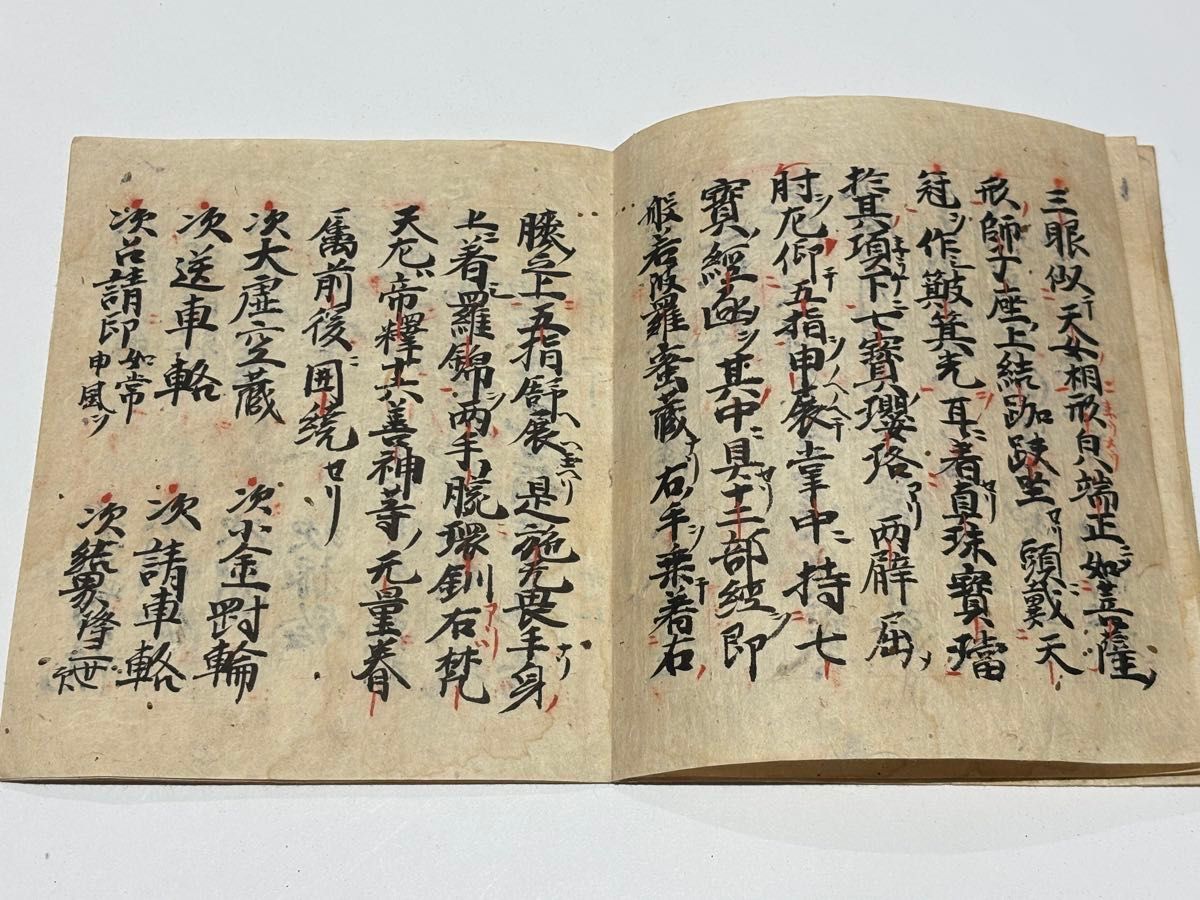 三眼似天女相形白八端正如菩薩
形師子座上結跏趺坐セリ頭戴天
冠作簸箕光耳ニ着真珠寶璫
於其項下ニ七寶瓔珞アリ兩臂屈
肘左仰五指申展掌中ニ持七
寶經凾其中ニ具セリ十二部経即
般若波羅蜜蔵ナリ右手乗着右
膝之上五指舒展是施无畏手ナリ身
上ニ着羅錦两手腕環釧アリ右梵
天左帝釋十六善神等无量眷
属前後ニ囲繞セリ
次大虚空蔵 次小金剛輪
次送車輅 次請車輅
次召請印如常申風 次結界降三世